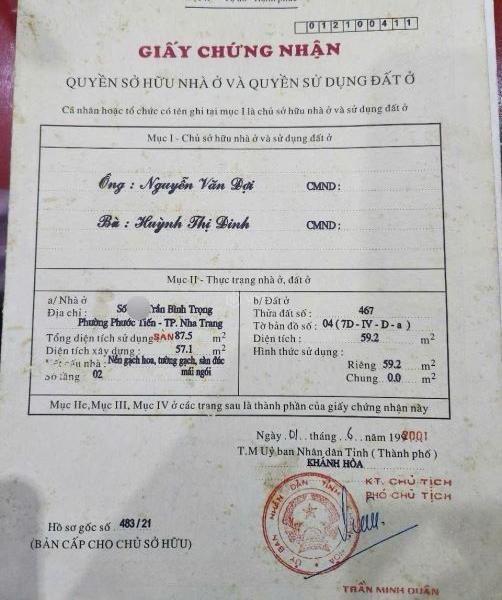 0 1 2 1 0 0 4 1 1
GIẤY CHỨNG NHẬN
QUYỀN SỞ HỮU NHÀ Ở VÀ QUYỀN SỬ DỤNG ĐẤT Ở
Cá nhân hoặc tổ chức có tên ghi tại mục I là chủ sở hữu nhà ở và sử dụng đất ở
Mục I - Chủ sở hữu nhà ở và sử dụng đất ở
Ông : Nguyễn Văn Đợi CMND :
Bà : Huỳnh Thị Dinh CMND :
Mục II - Thực trạng nhà ở, đất ở
a/ Nhà ở
Địa chỉ : Số Trần Bình Trọng
Phường Phước Tiến - TP. Nha Trang
Tổng diện tích sử dụng SÀN 87.5 m2
Diện tích xây dựng : 57.1 m2
Kết cấu nhà : Nền gạch hoa, tường gạch, sàn đúc
mái ngói
Số tầng 02
b/ Đất ở
Thửa đất số : 467
Tờ bản đồ số : 04 ( 7D - IV - D - a )
Diện tích : 59.2 m2
Hình thức sử dụng :
Riêng 59.2 m2
Chung 0.0 m2
Mục IIe, Mục III, Mục IV ở các trang sau là thành phần của giấy chứng nhận này
Ngày 01 tháng 6 năm 199 2001
T.M Uỷ ban Nhân dân Tỉnh ( Thành phố )
KHÁNH HÒA
KT. CHỦ TỊCH
PHÓ CHỦ TỊCH
ỦY BAN NHÂN DÂN TỈNH KHÁNH HÒA
Hồ sơ gốc số 483/21
(BẢN CẤP CHO CHỦ SỞ HỮU)
TRẦN MINH DUÂN